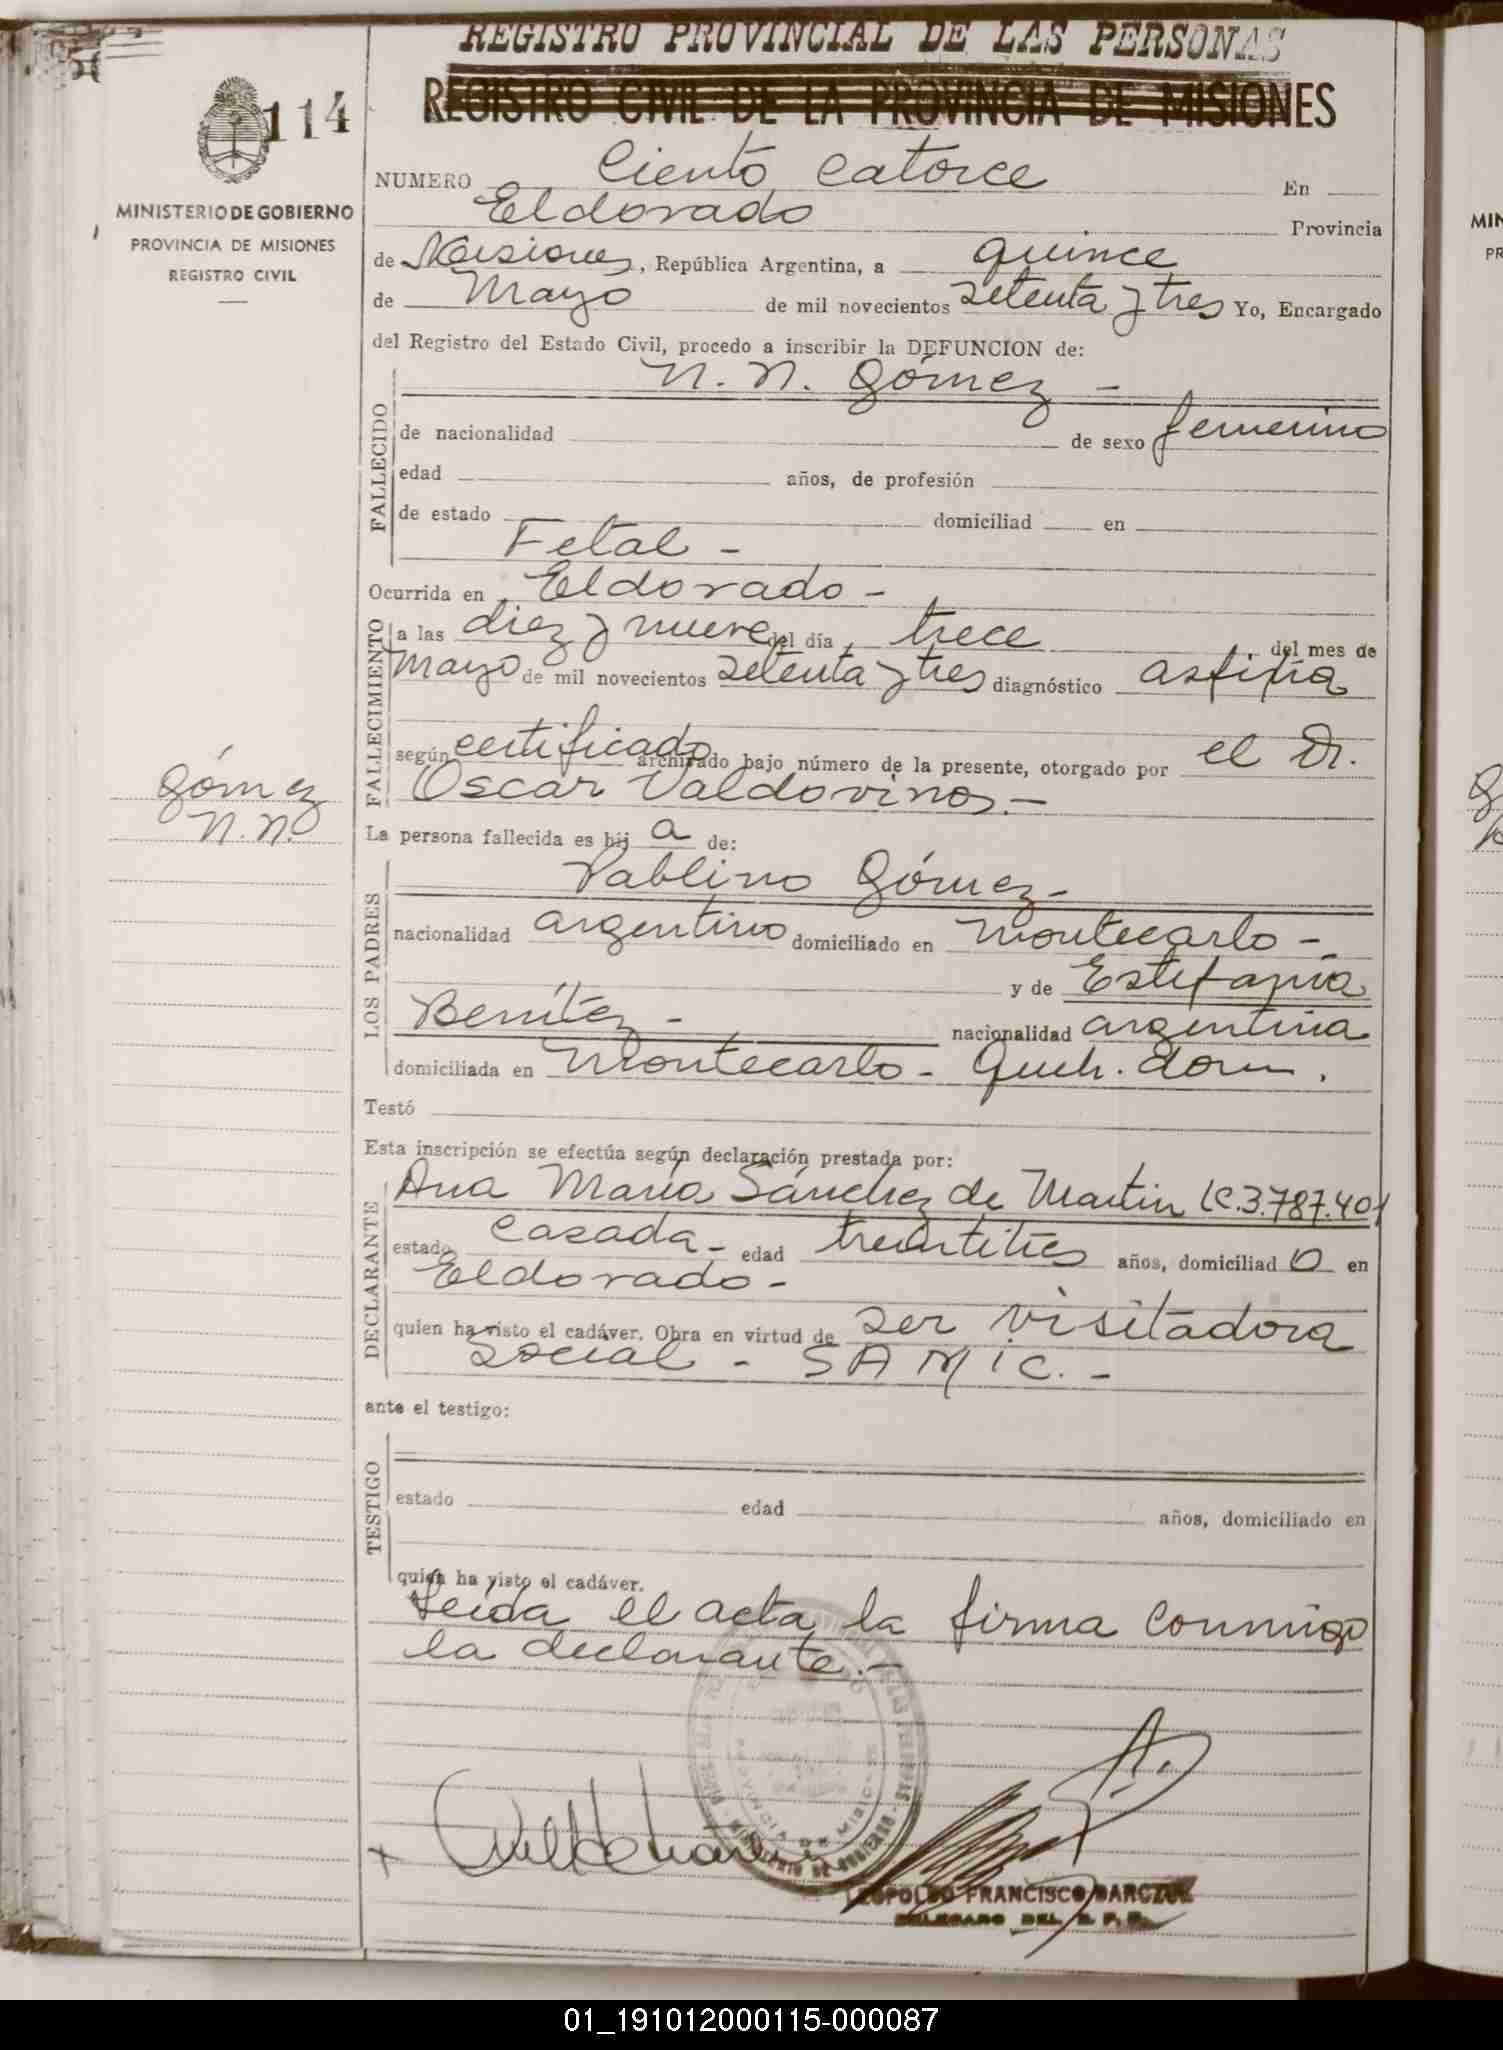 REGISTRO PROVINCIAL DE LAS PERSONAS
REGISTRO CIVIL DE LA PROVINCIA DE MISIONES
114
MINISTERIO DE GOBIERNO
PROVINCIA DE MISIONES
REGISTRO CIVIL
NUMERO Ciento catorce En
Eldorado Provincia
de Misiones, República Argentina, a quince
de Mayo de mil novecientos setenta y tres Yo, Encargado
del Registro del Estado Civil, procedo a inscribir la DEFUNCION de:
FALLECIDO
N. N. Gómez -
de nacionalidad de sexo femenino
edad años, de profesión
de estado domiciliad en
Fetal -
Ocurrida en Eldorado -
FALLECIMIENTO
a las diez y nueve del día trece del mes de
Mayo de mil novecientos setenta y tres diagnóstico asfixia
según certificado archivado bajo número de la presente, otorgado por el Dr.
Oscar Valdovinos. -
Gómez
N. N.
La persona fallecida es hij a de:
LOS PADRES
Pablino Gómez -
nacionalidad argentino domiciliado en Montecarlo -
y de Estefania
Benítez - nacionalidad argentina
domiciliada en Montecarlo - Queh. dom.
Testó
Esta inscripción se efectúa según declaración prestada por:
DECLARANTE
Ana María Sánchez de Martin LC.3.787.401
estado casada - edad treintitres años, domiciliad o en
Eldorado -
quien ha visto el cadáver. Obra en virtud de ser visitadora
social - SAMIC. -
ante el testigo:
TESTIGO
estado edad años, domiciliado en
quien ha visto el cadáver.
Leída el acta la firma conmigo
la declarante. -
LEOPOLDO FRANCISCO
DELEGADO DEL R. P. P.
01_191012000115-000087